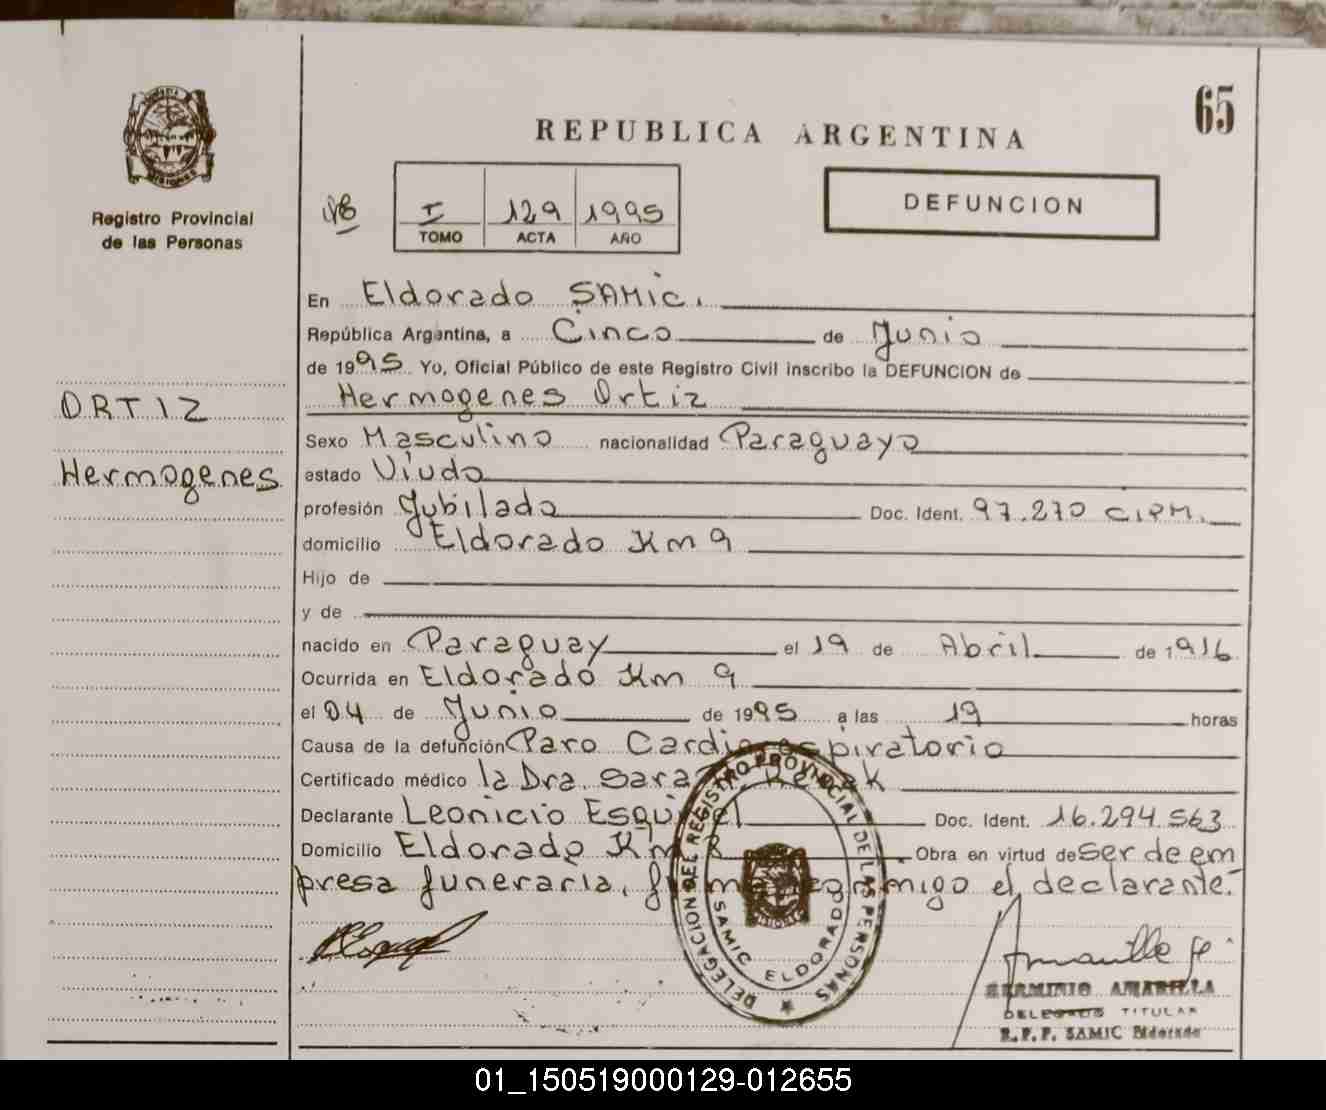 65
REPUBLICA ARGENTINA
Registro Provincial
de las Personas
I 129 1995
TOMO ACTA AÑO
DEFUNCION
ORTIZ
Hermogenes
En Eldorado SAMIC.
República Argentina, a Cinco de Junio
de 1995 Yo, Oficial Público de este Registro Civil inscribo la DEFUNCION de
Hermogenes Ortiz
Sexo Masculino nacionalidad Paraguayo
estado Viudo
profesión Jubilado Doc. Ident. 97.270 C.I.P.M.
domicilio Eldorado Km 9
Hijo de
y de
nacido en Paraguay el 19 de Abril de 1916
Ocurrida en Eldorado Km 9
el 04 de Junio de 1995 a las 19 horas
Causa de la defunción Paro Cardiorespiratorio
Certificado médico la Dra. Sara
Declarante Leonicio Esquivel Doc. Ident. 16.294.563
Domicilio Eldorado Km 8 Obra en virtud de ser de em
presa funeraria, firma conmigo el declarante.
DELEGACION DEL REGISTRO PROVINCIAL DE LAS PERSONAS
SAMIC ELDORADO
MISIONES
HERMINIO AMARILLA
DELEGADO TITULAR
R.P.P. SAMIC Eldorado
01_150519000129-012655